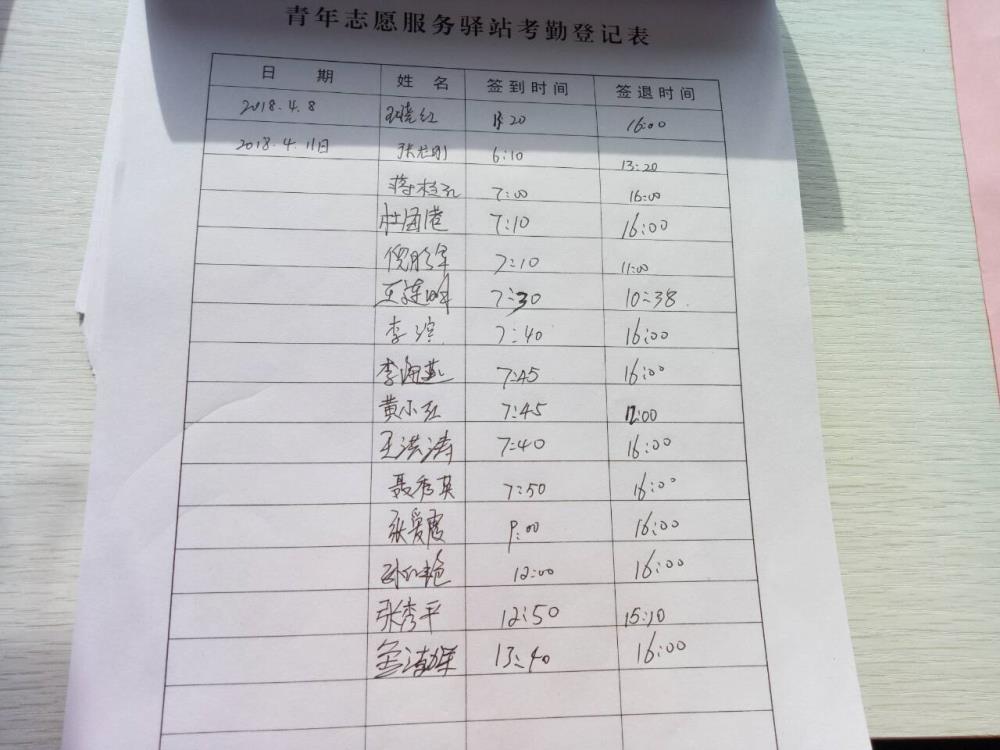 青年志愿服务驿站考勤登记表
日 期 姓 名 签到时间 签退时间
2018.4.8 王晓红 13:20 16:00
2018.4.11日 6:10 13:20
7:00 16:00
杜国港 7:10 16:00
7:10 11:00
王建峰 7:30 10:38
李滨 7:40 16:00
李海燕 7:45 16:00
黄小红 7:45 12:00
王洪涛 7:40 16:00
聂秀英 7:50 16:00
张爱霞 9:00 16:00
12:00 16:00
张秀平 12:50 15:10
13:40 16:00